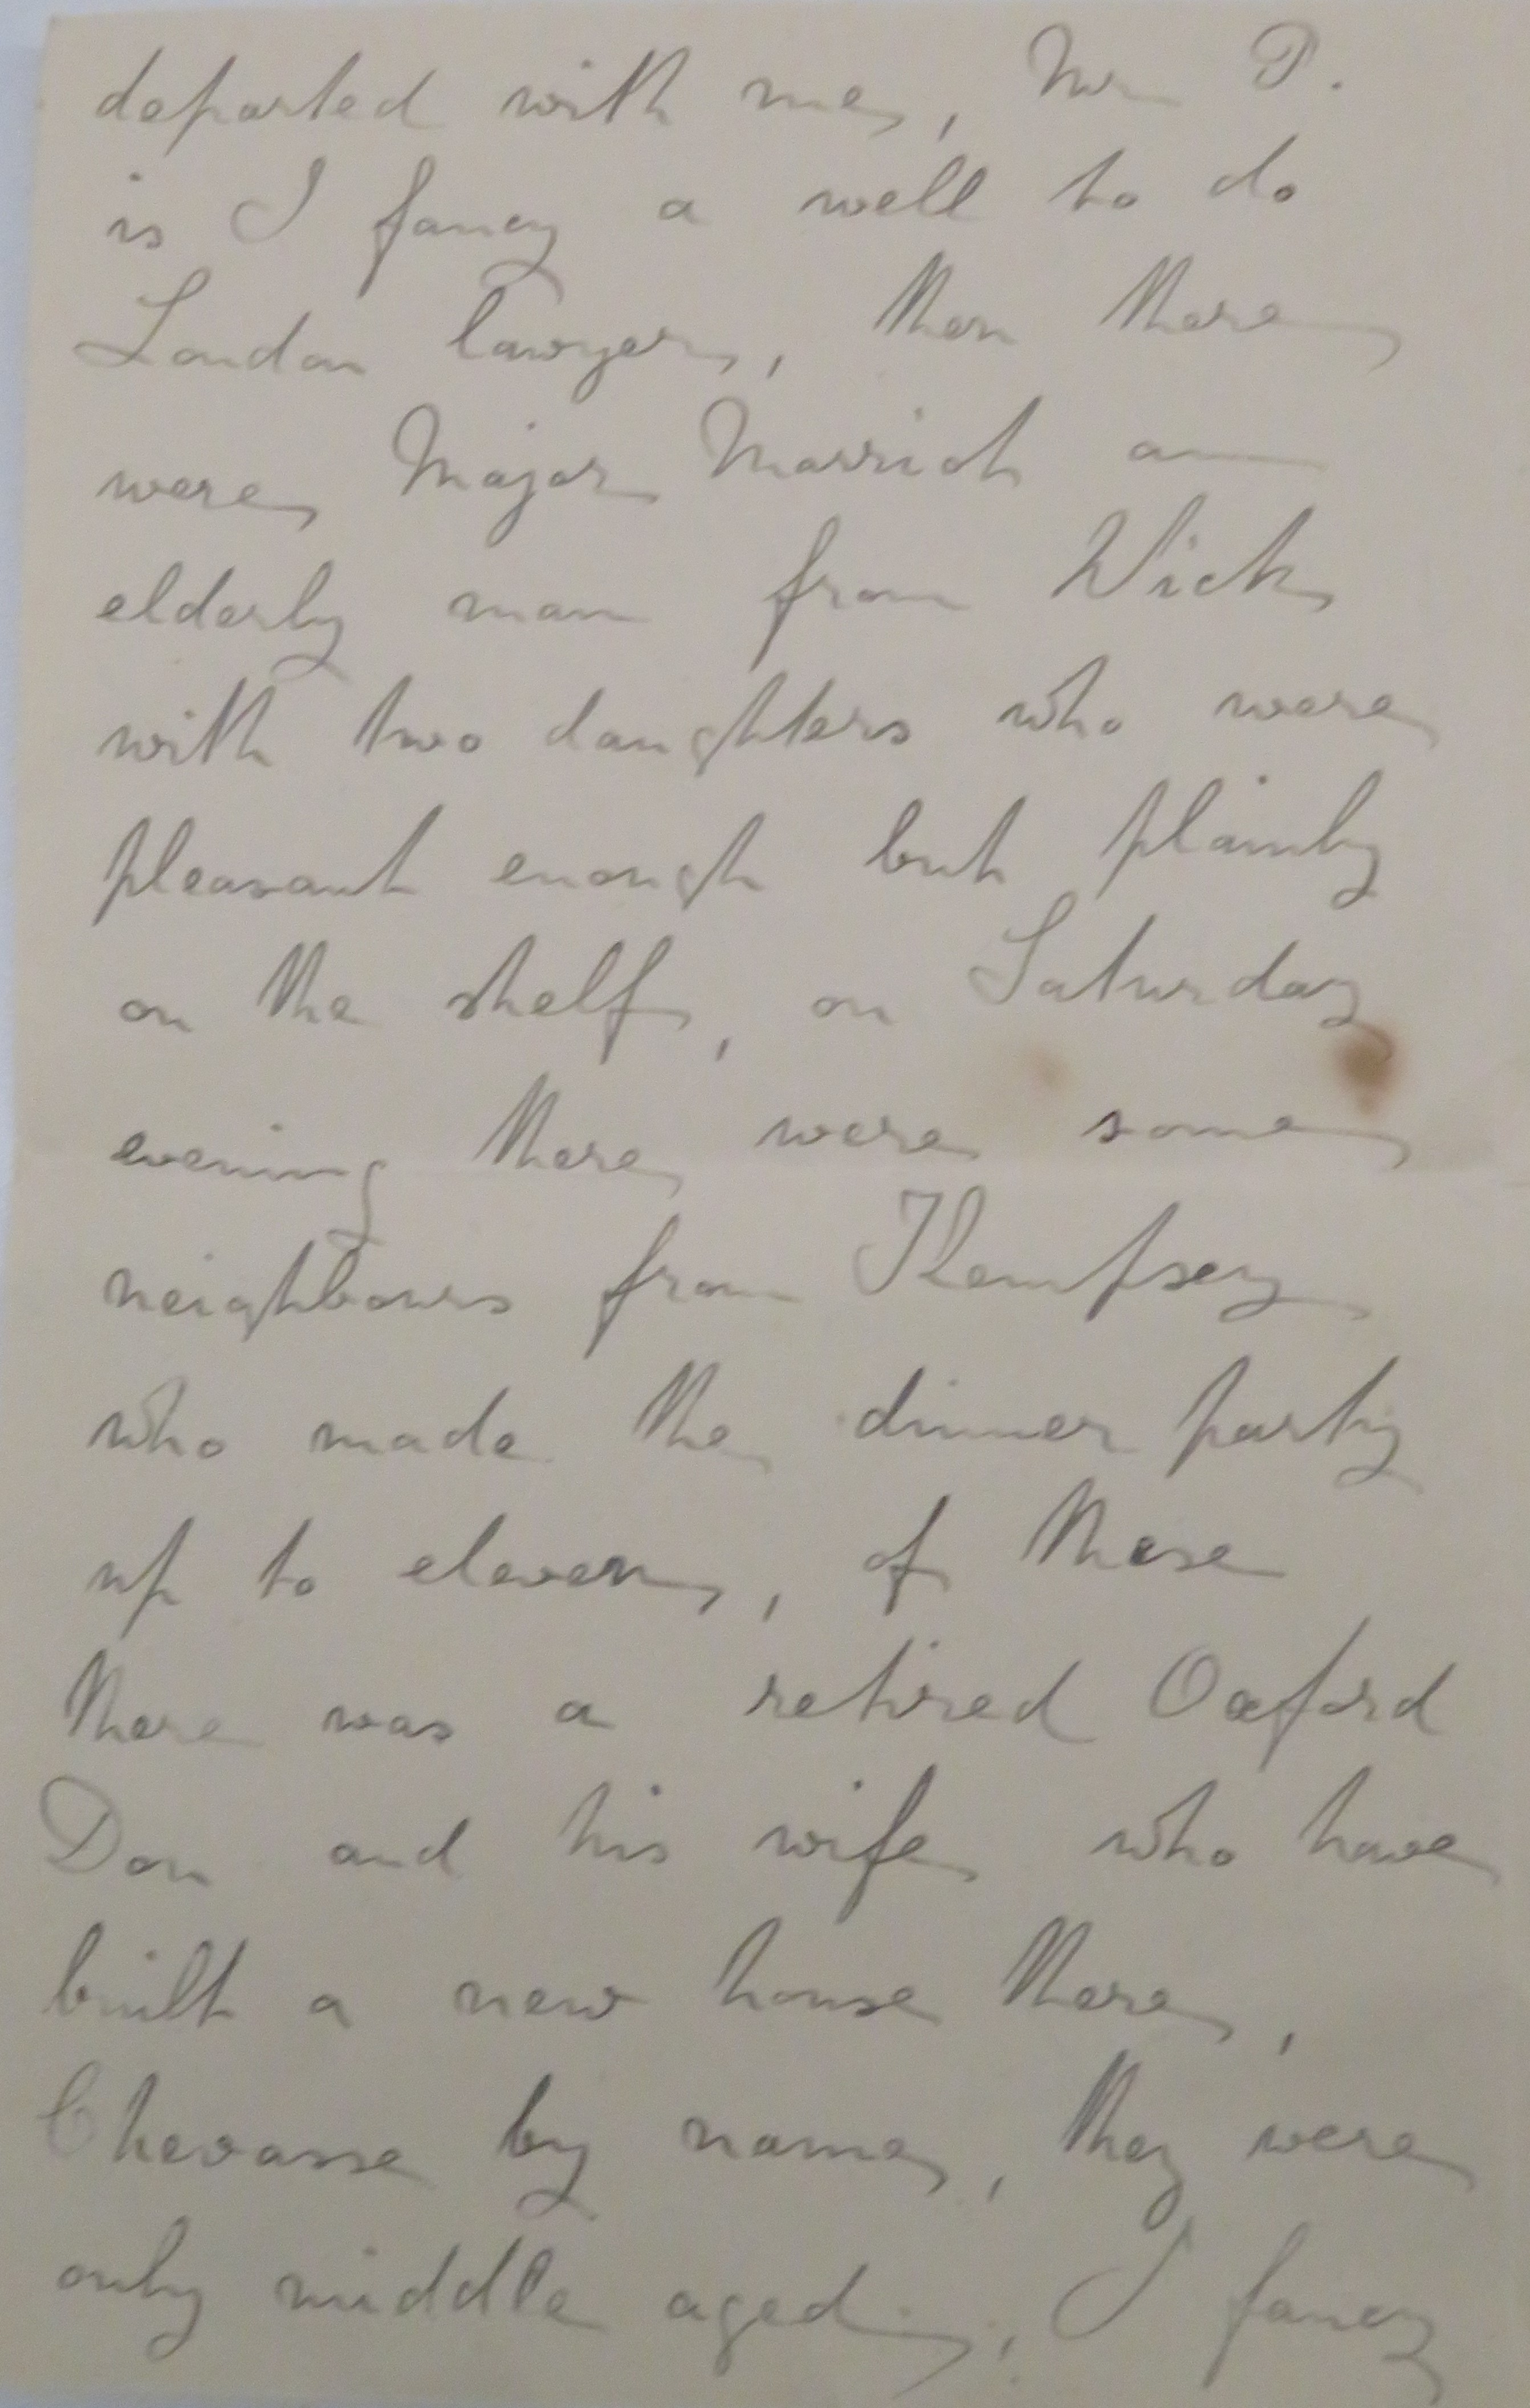 departed with me, Mr P.
is I fancy a well to do
London lawyer, then there
were Major Marrich an
elderly man from Wick
with two daughters who were
pleasant enough but plainly
on the shelf, on Saturday
evening there were some
neighbours from Kempsey
who made the dinner party
up to eleven, of these
there was a retired Oxford
Don and his wife who have
built a new house there,
Chevasse by name, they were
only middle aged, I fancy